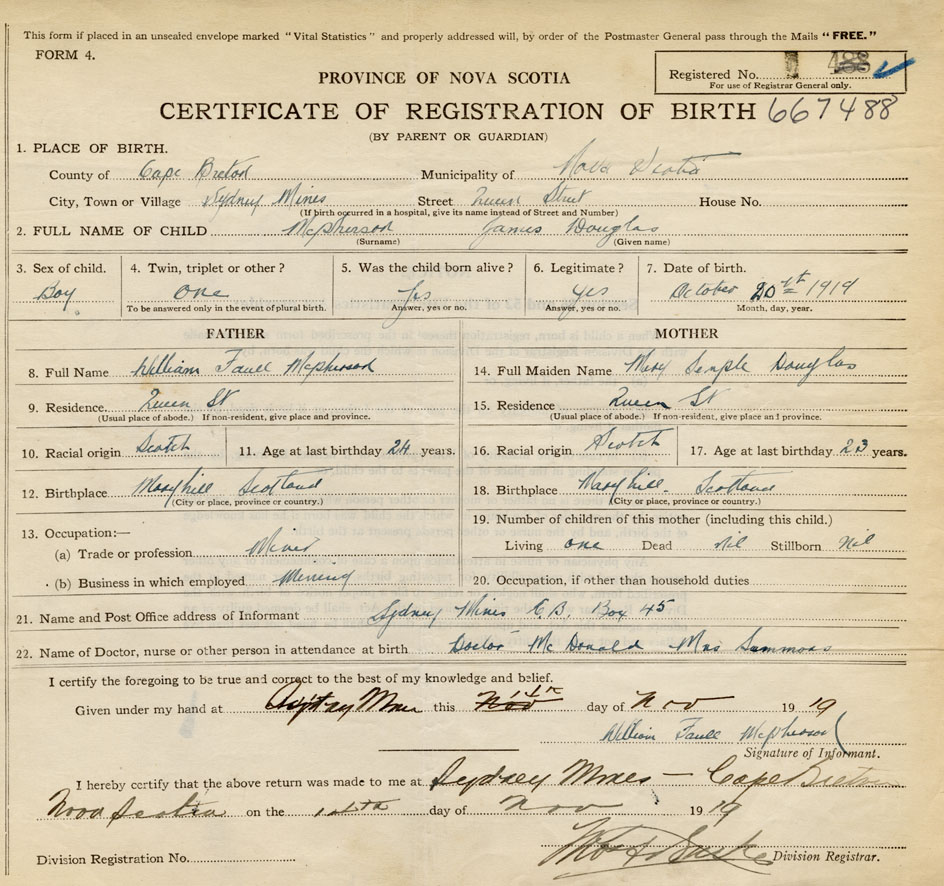 This form if placed in an unsealed envelope marked "Vital Statistics" and properly addressed will, by order of the Postmaster General pass through the Mails "FREE."
FORM 4.
PROVINCE OF NOVA SCOTIA
Registered No. 488
For use of Registrar General only.
CERTIFICATE OF REGISTRATION OF BIRTH 667488
(BY PARENT OR GUARDIAN)
1. PLACE OF BIRTH.
County of Cape Breton Municipality of Nova Scotia
City, Town or Village Sydney Mines Street Queen Street House No.
(If birth occurred in a hospital, give its name instead of Street and Number)
2. FULL NAME OF CHILD McPherson James Douglas
(Surname) (Given name)
3. Sex of child. 4. Twin, triplet or other? 5. Was the child born alive? 6. Legitimate? 7. Date of birth.
Boy one Yes yes October 20th 1919
To be answered only in the event of plural birth. Answer, yes or no. Answer, yes or no. Month, day, year.
FATHER MOTHER
8. Full Name William Faull McPherson 14. Full Maiden Name Mary Semple Douglas
9. Residence. Queen St 15. Residence Queen St
(Usual place of abode.) If non-resident, give place and province. (Usual place of abode.) If non-resident, give place and province.
10. Racial origin Scotch 11. Age at last birthday 24 years. 16. Racial origin Scotch 17. Age at last birthday 23 years.
12. Birthplace Maryhill Scotland 18. Birthplace Maryhill. Scotland
(City or place, province or country.) (City or place, province or country.)
13. Occupation:— 19. Number of children of this mother (including this child.)
(a) Trade or profession Miner Living one Dead nil Stillborn Nil
(b) Business in which employed Mening 20. Occupation, if other than household duties
21. Name and Post Office address of Informant Sydney Mines C.B. Box 45
22. Name of Doctor, nurse or other person in attendance at birth Doctor McDonald Mrs Sammons
I certify the foregoing to be true and correct to the best of my knowledge and belief.
Given under my hand at Sydney Mines this 14th Nov day of Nov 1919
William Faull McPherson
Signature of Informant.
I hereby certify that the above return was made to me at Sydney Mines — Cape Breton
Nova Scotia on the 14th day of Nov 1919
Division Registration No. Division Registrar.